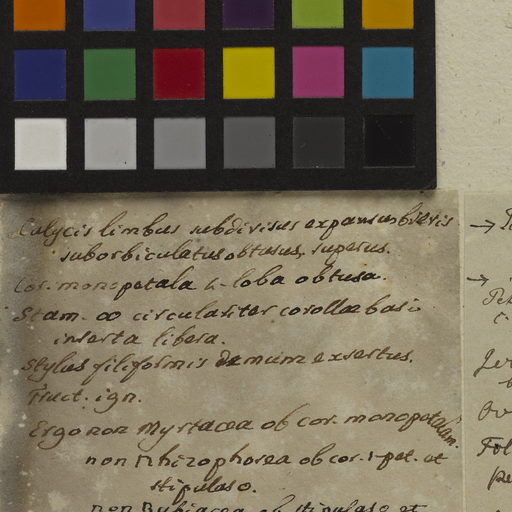 Calycis limbus subdivisus expansus brevis
suborbiculatus obtusus, superus.
Cor. monopetala 4-loba obtusa.
Stam. ∞ circulariter corollae basi
inserta libera.
Stylus filiformis demum exsertus.
Fruct. ign.
Ergo non Myrtacea ob cor. monopetalam.
non Rhizophorea ob cor. 1-pet. et
stipulas 0.
non Rubiacea ob stipulas 0 et
→
→
Fol